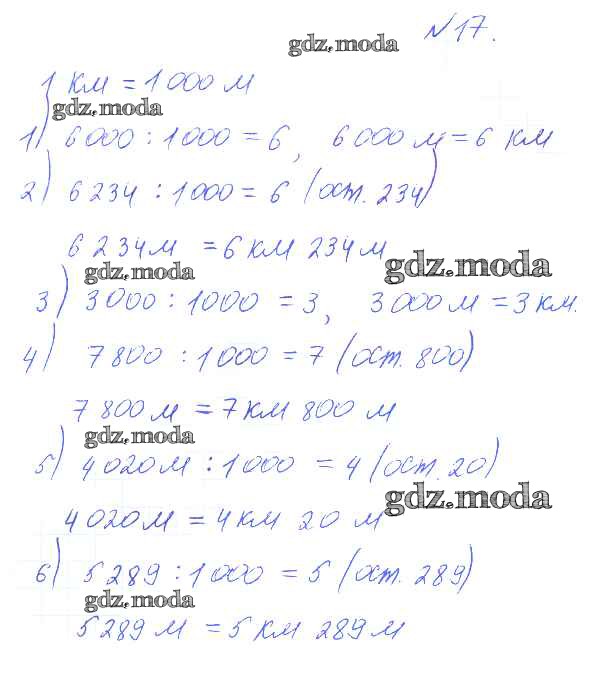 gdz.moda № 17.
1 км = 1 000 м
gdz.moda
1) 6 000 : 1 000 = 6, 6 000 м = 6 км
2) 6 234 : 1 000 = 6 (ост. 234)
6 234 м = 6 км 234 м
gdz.moda gdz.moda
3) 3 000 : 1 000 = 3, 3 000 м = 3 км.
4) 7 800 : 1 000 = 7 (ост. 800)
7 800 м = 7 км 800 м
gdz.moda
5) 4 020 м : 1 000 = 4 (ост. 20)
gdz.moda
4 020 м = 4 км 20 м
6) 5 289 : 1 000 = 5 (ост. 289)
gdz.moda
5 289 м = 5 км 289 м